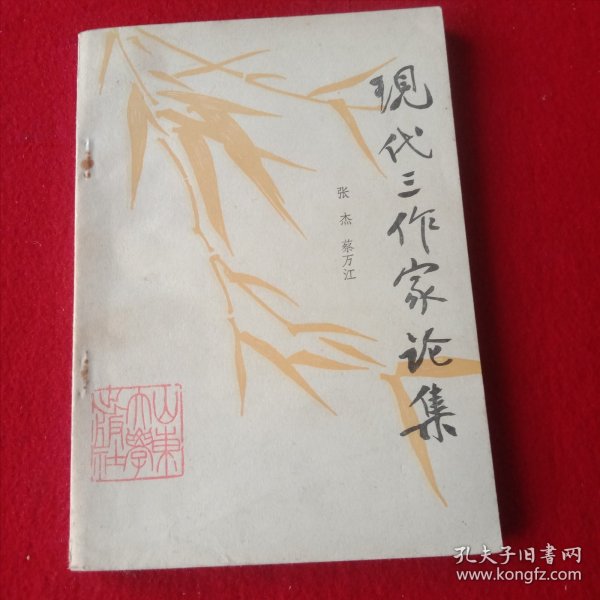 現代三作家论集
张杰 蔡万江
山東
大學
出版社
孔夫子旧書网
www.kongfz.com